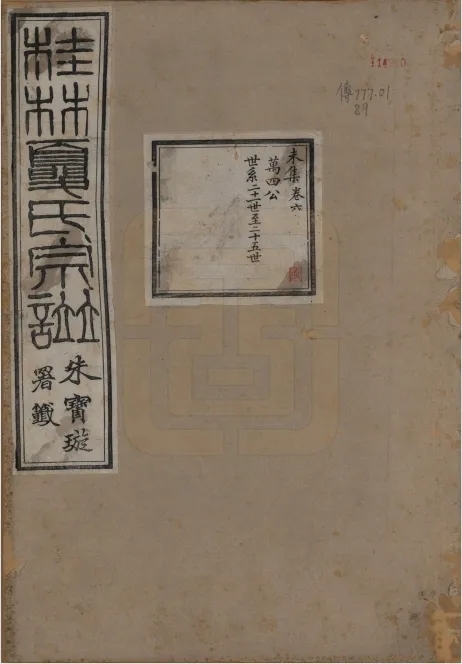 傳777.01
89
未集卷六
萬四公
世系二十一世至二十五世
桂林夏氏宗譜
朱寶璇
署籤